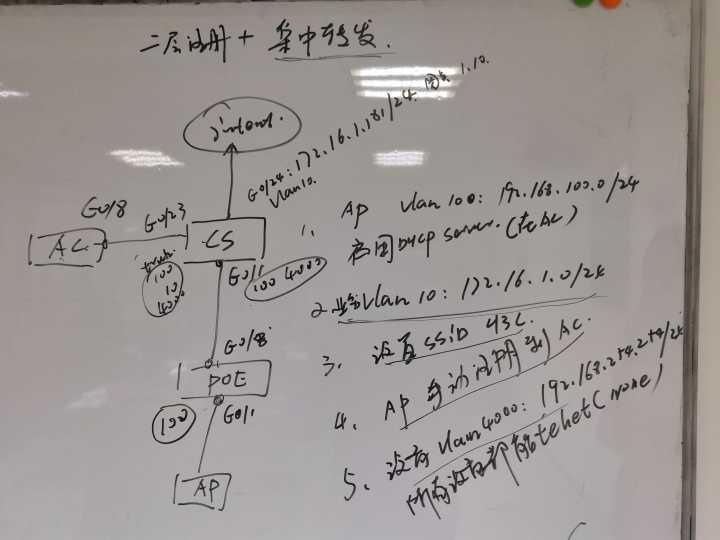 二层注册 + 集中转发.
internet.
G0/24: 172.16.1.181/24. 网关 1.10.
Vlan 10.
G0/8
G0/23
AC
CS
trunk
100
10
4000
G0/1
100 4000
G0/8
POE
100
G0/1
AP
1. AP vlan 100: 192.168.100.0/24
启用DHCP server. (在AC)
2. 业务Vlan 10: 172.16.1.0/24
3. 设置SSID H3C.
4. AP自动注册到AC.
5. 设有Vlan4000: 192.168.254.254/24
所有设备都有telnet (none)